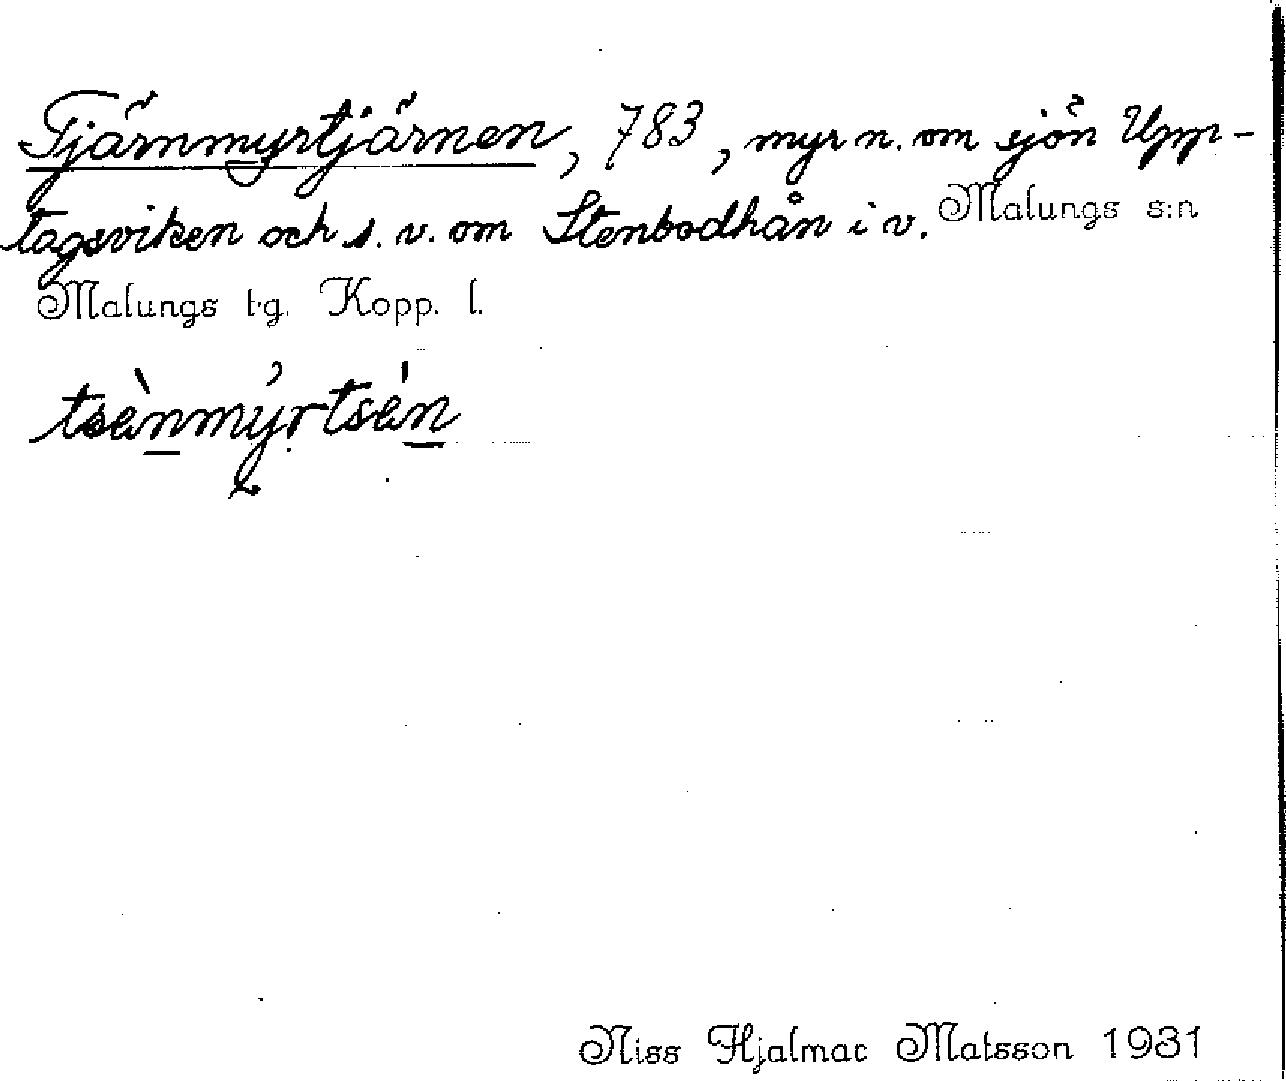 Tjärnmyrtjärnen, 783, myr n. om sjön Upp-
tagsviken och s.v. om Stenbodhån i v. Malungs s:n
Malungs t.g. Kopp. l.
tsènmýrtsén
Niss Hjalmar Matsson 1931